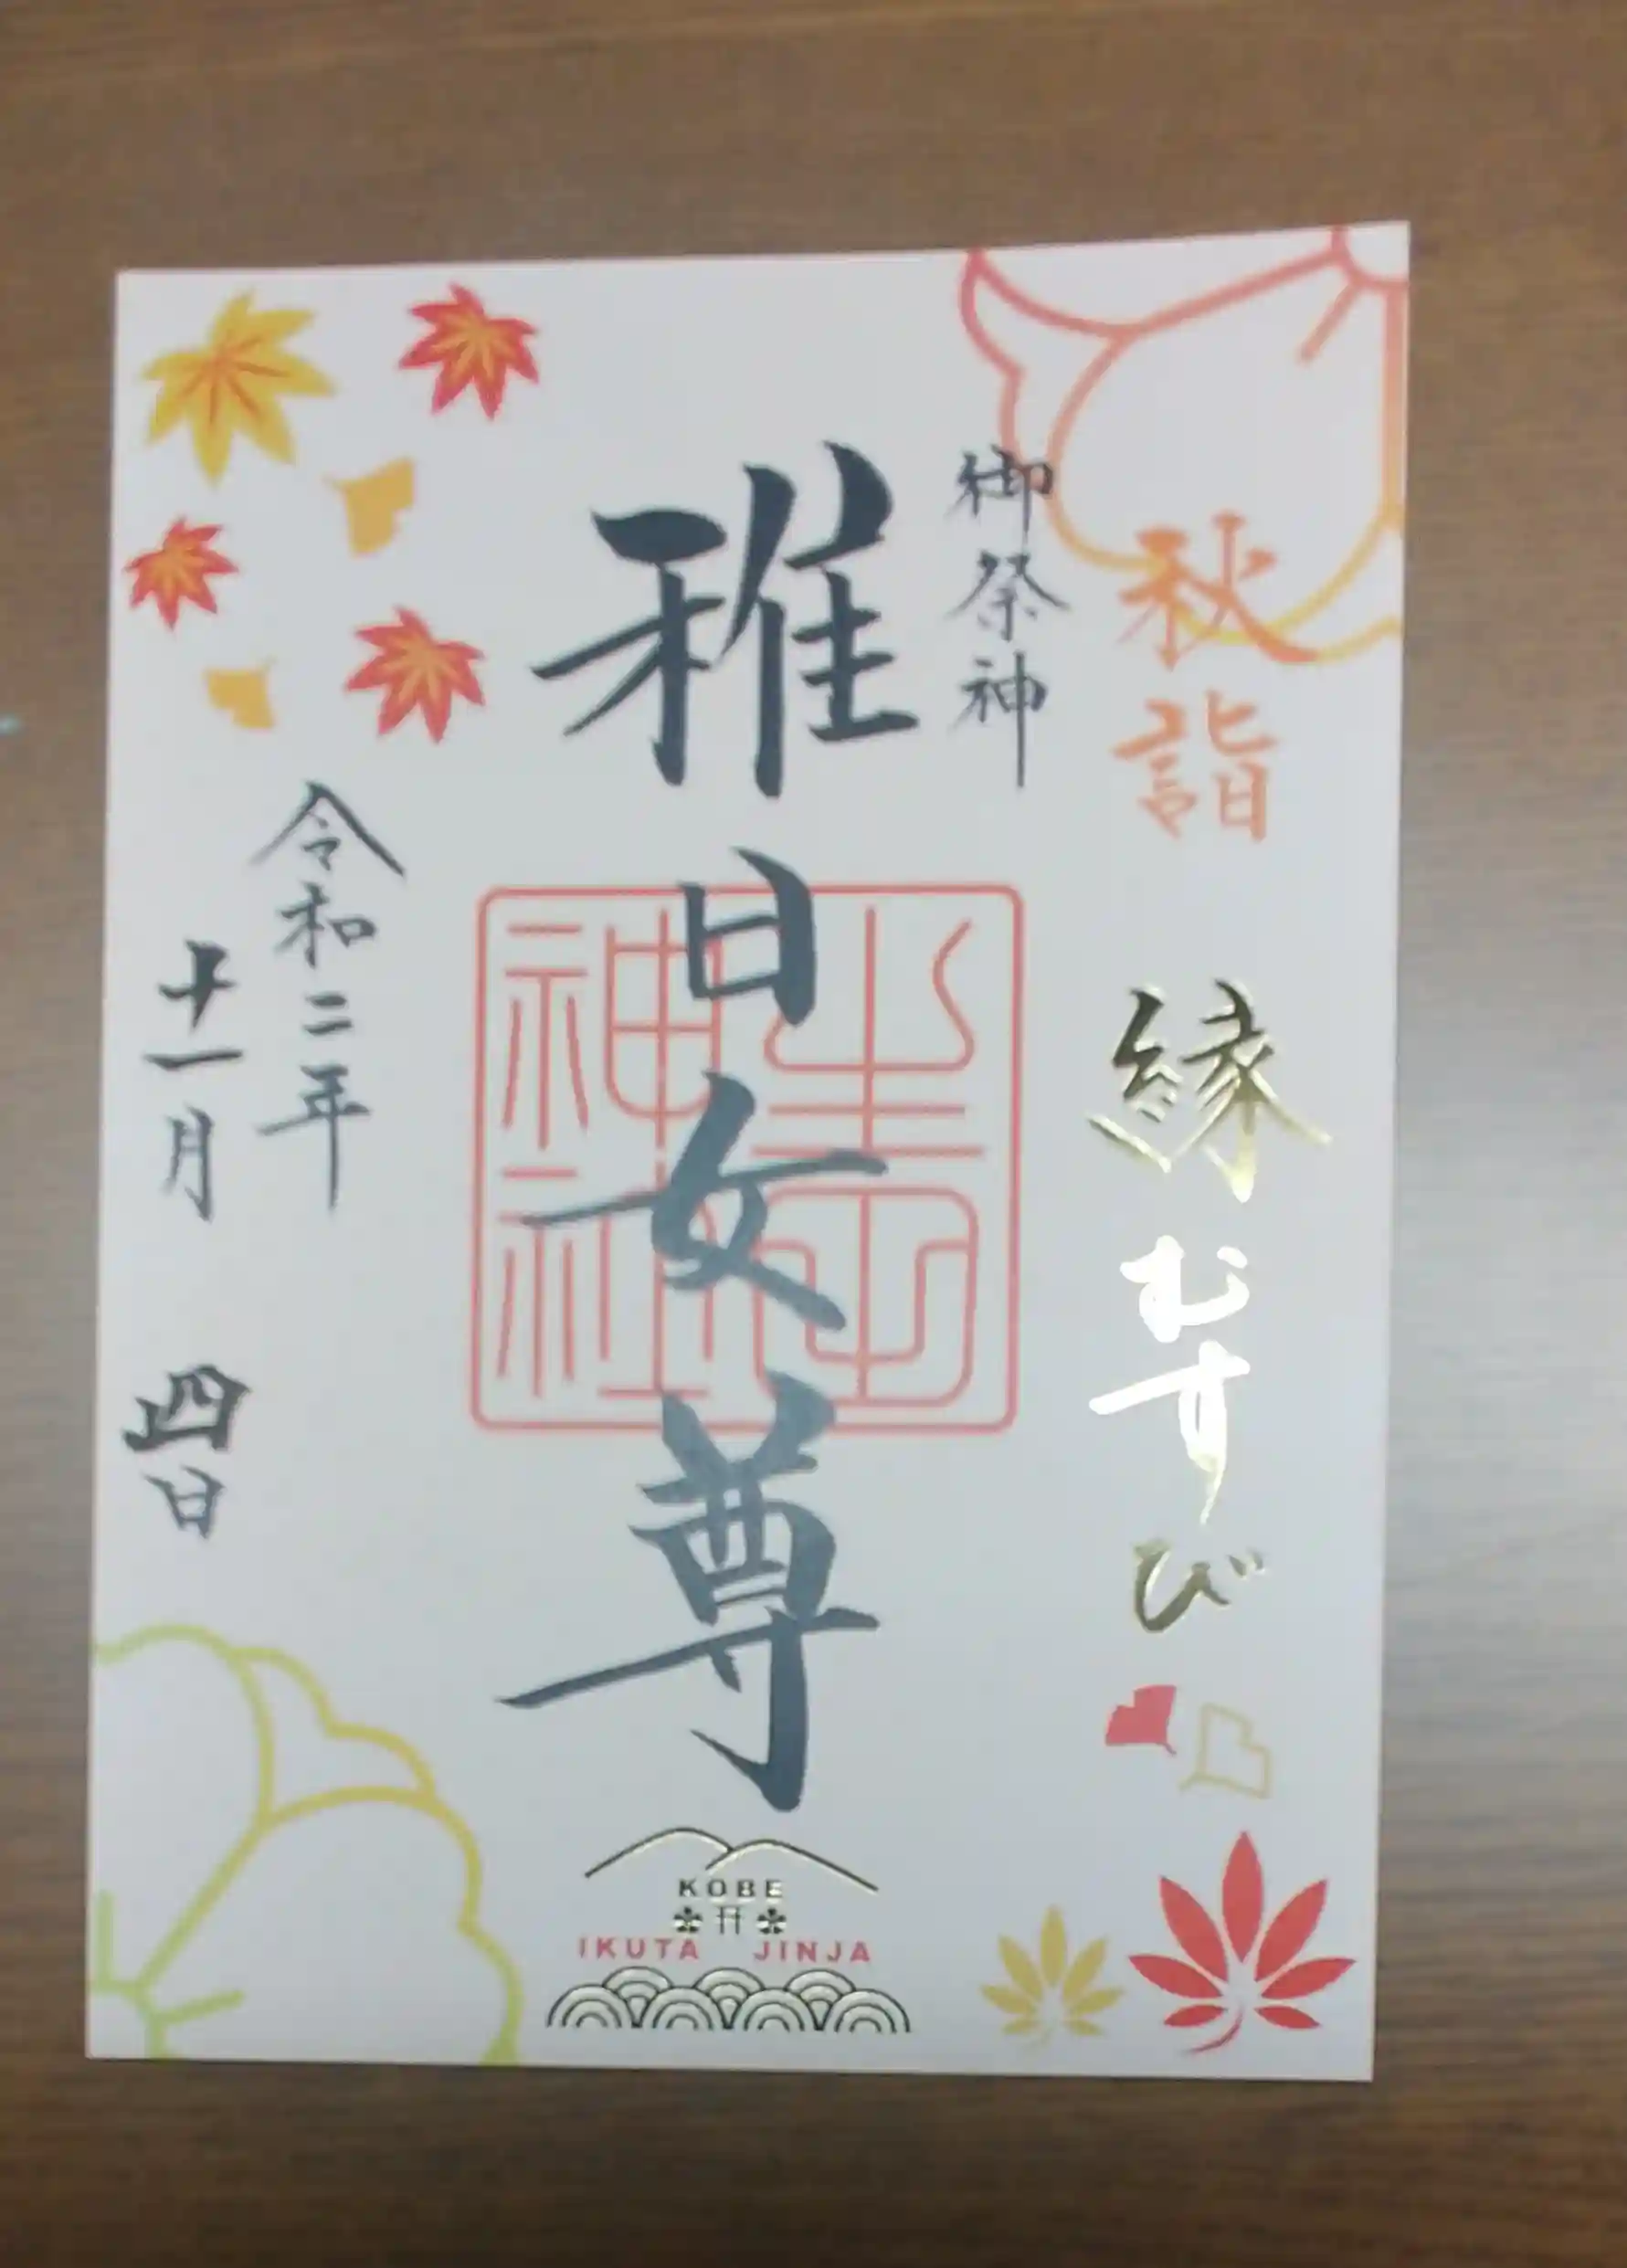 秋詣
縁むすび
御祭神
稚日女尊
生田神社
令和二年
十一月 四日
KOBE
IKUTA JINJA